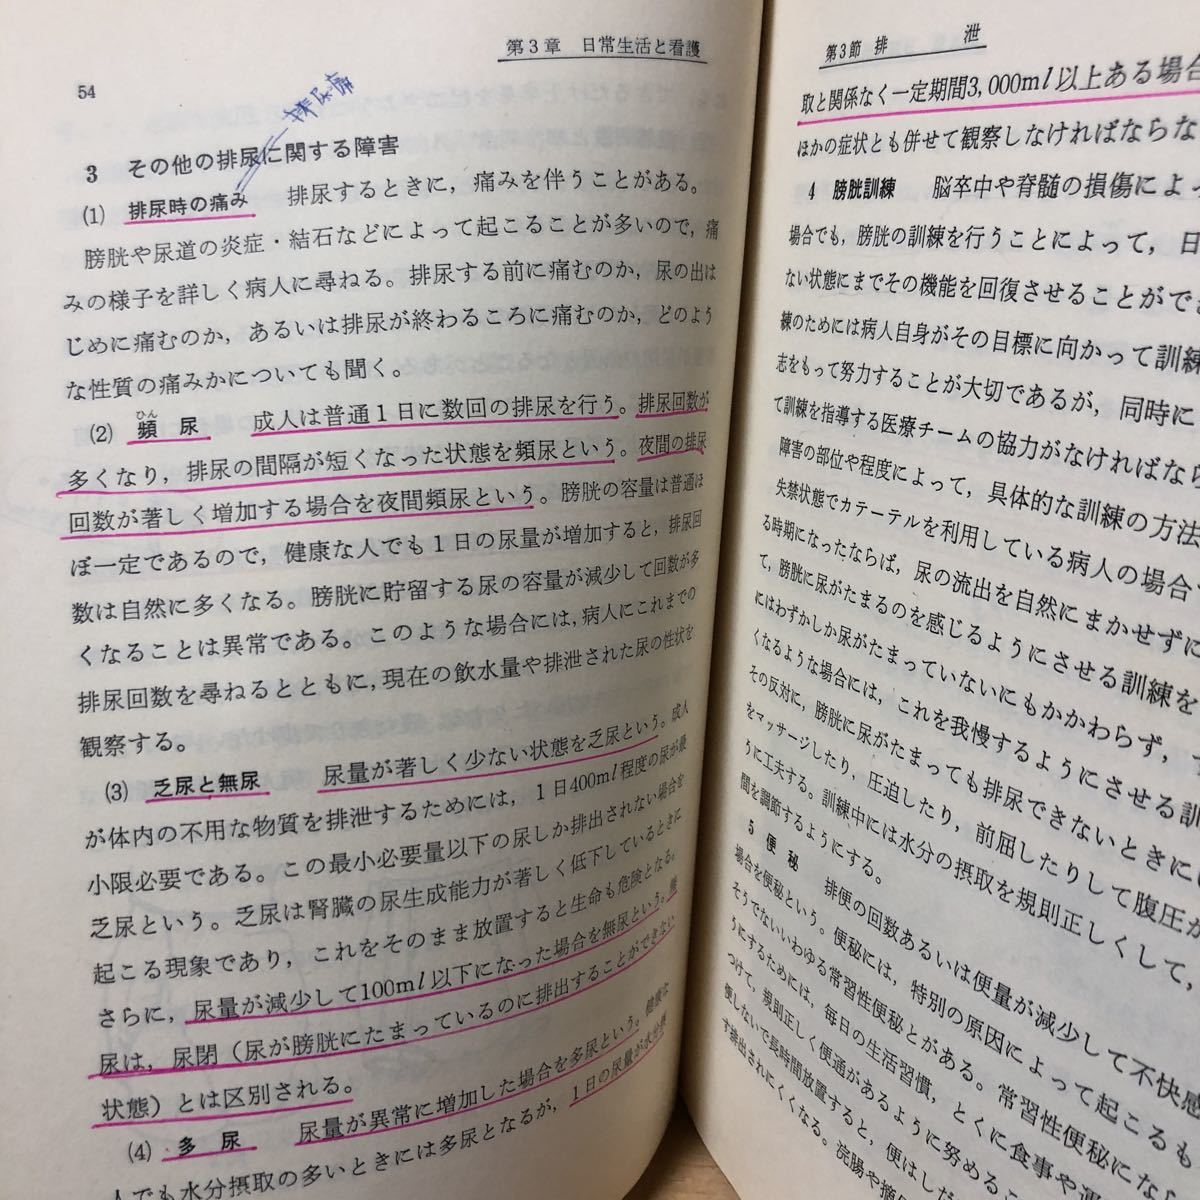 54
第3章 日常生活と看護
排尿痛
3 その他の排尿に関する障害
(1) 排尿時の痛み 排尿するときに，痛みを伴うことがある。
膀胱や尿道の炎症・結石などによって起こることが多いので，痛
みの様子を詳しく病人に尋ねる。排尿する前に痛むのか，尿の出は
じめに痛むのか，あるいは排尿が終わるころに痛むのか，どのよう
な性質の痛みかについても聞く。
ひん
(2) 頻尿 成人は普通1日に数回の排尿を行う。排尿回数が
多くなり，排尿の間隔が短くなった状態を頻尿という。夜間の排尿
回数が著しく増加する場合を夜間頻尿という。膀胱の容量は普通ほ
ぼ一定であるので，健康な人でも1日の尿量が増加すると，排尿回
数は自然に多くなる。膀胱に貯留する尿の容量が減少して回数が多
くなることは異常である。このような場合には，病人にこれまでの
排尿回数を尋ねるとともに，現在の飲水量や排泄された尿の性状を
観察する。
(3) 乏尿と無尿 尿量が著しく少ない状態を乏尿という。成人
が体内の不用な物質を排泄するためには，1日400ml程度の尿が最
小限必要である。この最小必要量以下の尿しか排出されない場合を
乏尿という。乏尿は腎臓の尿生成能力が著しく低下しているときに
起こる現象であり，これをそのまま放置すると生命も危険となる。
さらに，尿量が減少して100ml以下になった場合を無尿という。無
尿は，尿閉（尿が膀胱にたまっているのに排出することができない
状態）とは区別される。
(4) 多尿 尿量が異常に増加した場合を多尿という。健康な
人でも水分摂取の多いときには多尿となるが，1日の尿量が水分摂
第3節 排泄
取と関係なく一定期間3,000ml以上ある場合
ほかの症状とも併せて観察しなければならな
4 膀胱訓練 脳卒中や脊髄の損傷によ
場合でも，膀胱の訓練を行うことによって，日
ない状態にまでその機能を回復させることがで
練のためには病人自身がその目標に向かって訓練
志をもって努力することが大切であるが，同時に
て訓練を指導する医療チームの協力がなければなら
障害の部位や程度によって，具体的な訓練の方法
失禁状態でカテーテルを利用している病人の場合
る時期になったならば，尿の流出を自然にまかせずに
て，膀胱に尿がたまるのを感じるようにさせる訓練を
にはわずかしか尿がたまっていないにもかかわらず，
くなるような場合には，これを我慢するようにさせる訓
その反対に，膀胱に尿がたまっても排尿できないときに
をマッサージしたり，圧迫したり，前屈したりして腹圧が
うに工夫する。訓練中には水分の摂取を規則正しくして，
間を調節するようにする。
5 便秘 排便の回数あるいは便量が減少して不快感
場合を便秘という。便秘には，特別の原因によって起こるも
そうでないいわゆる常習性便秘とがある。常習性便秘にな
うにするためには，毎日の生活習慣，とくに食事や運
つけて，規則正しく便通があるように努めるこ
便しないで長時間放置すると，便はしだ
す排出されにくくなる。浣腸や摘